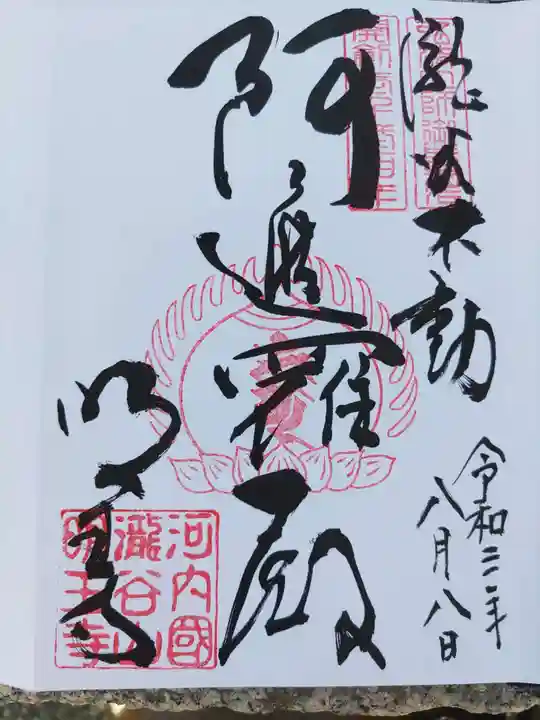 瀧谷不動
阿遮羅殿
明王寺
令和三年
八月八日
河内國
瀧谷山
明王寺